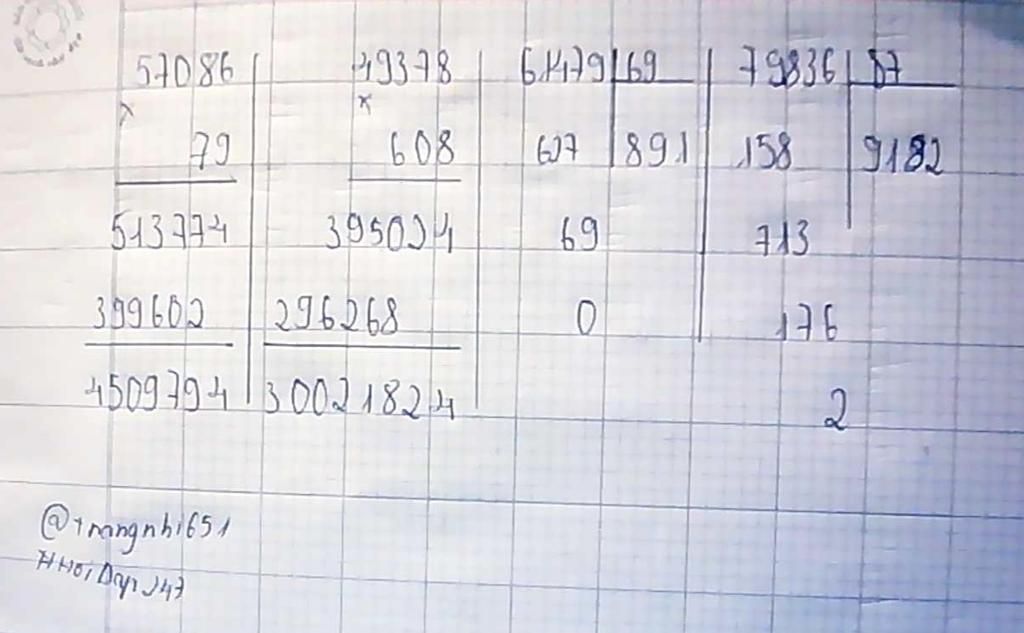 57086
x
79
513774
399602
4509794
49378
x
608
395024
296268
30021824
61479 69
627 891
69
0
79836 87
158 9182
713
176
2
@trangnhi651